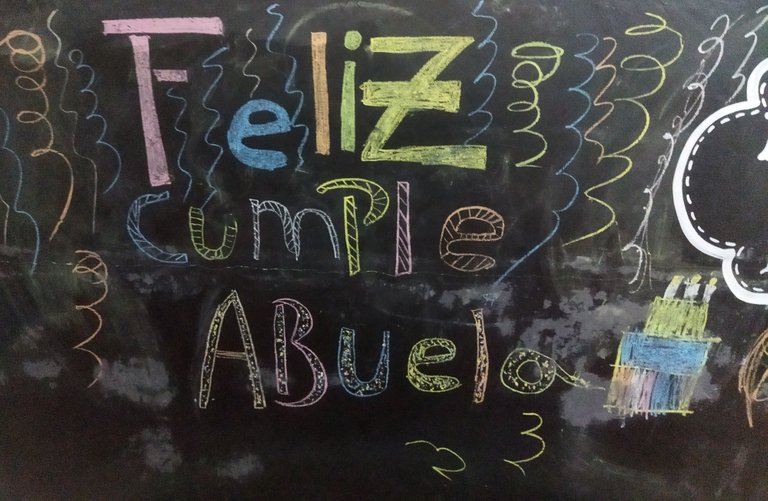 Feliz
cumple
ABuela